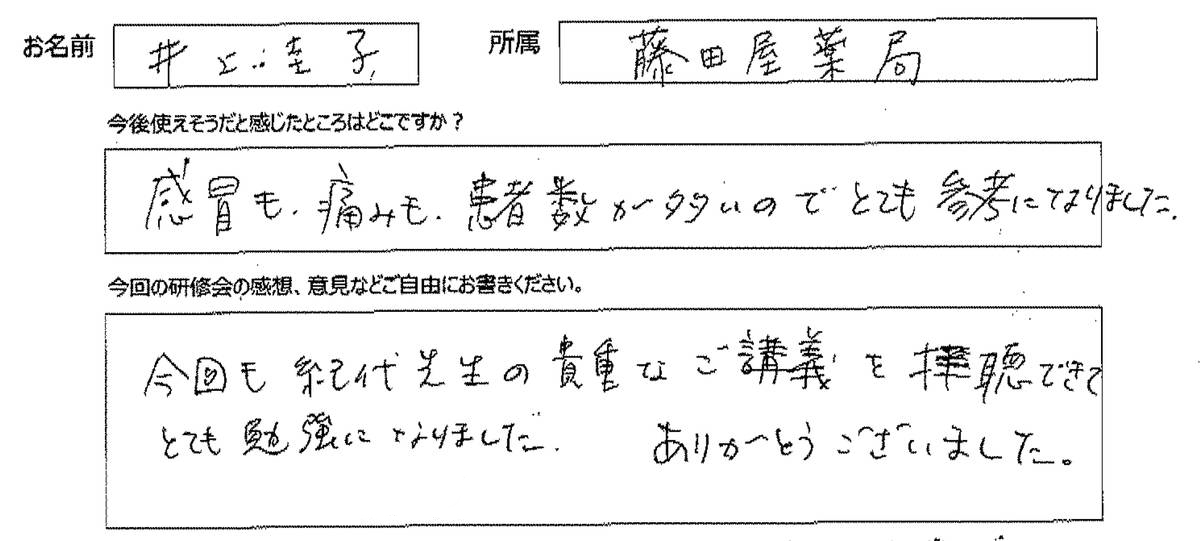 お名前 井上 圭子 所属 藤田屋薬局
今後使えそうだと感じたところはどこですか?
感冒も、痛みも、患者数が多いのでとても参考になりました.
今回の研修会の感想、意見などご自由にお書きください。
今回も紀代先生の貴重なご講義を拝聴できて
とても勉強になりました. ありがとうございました。